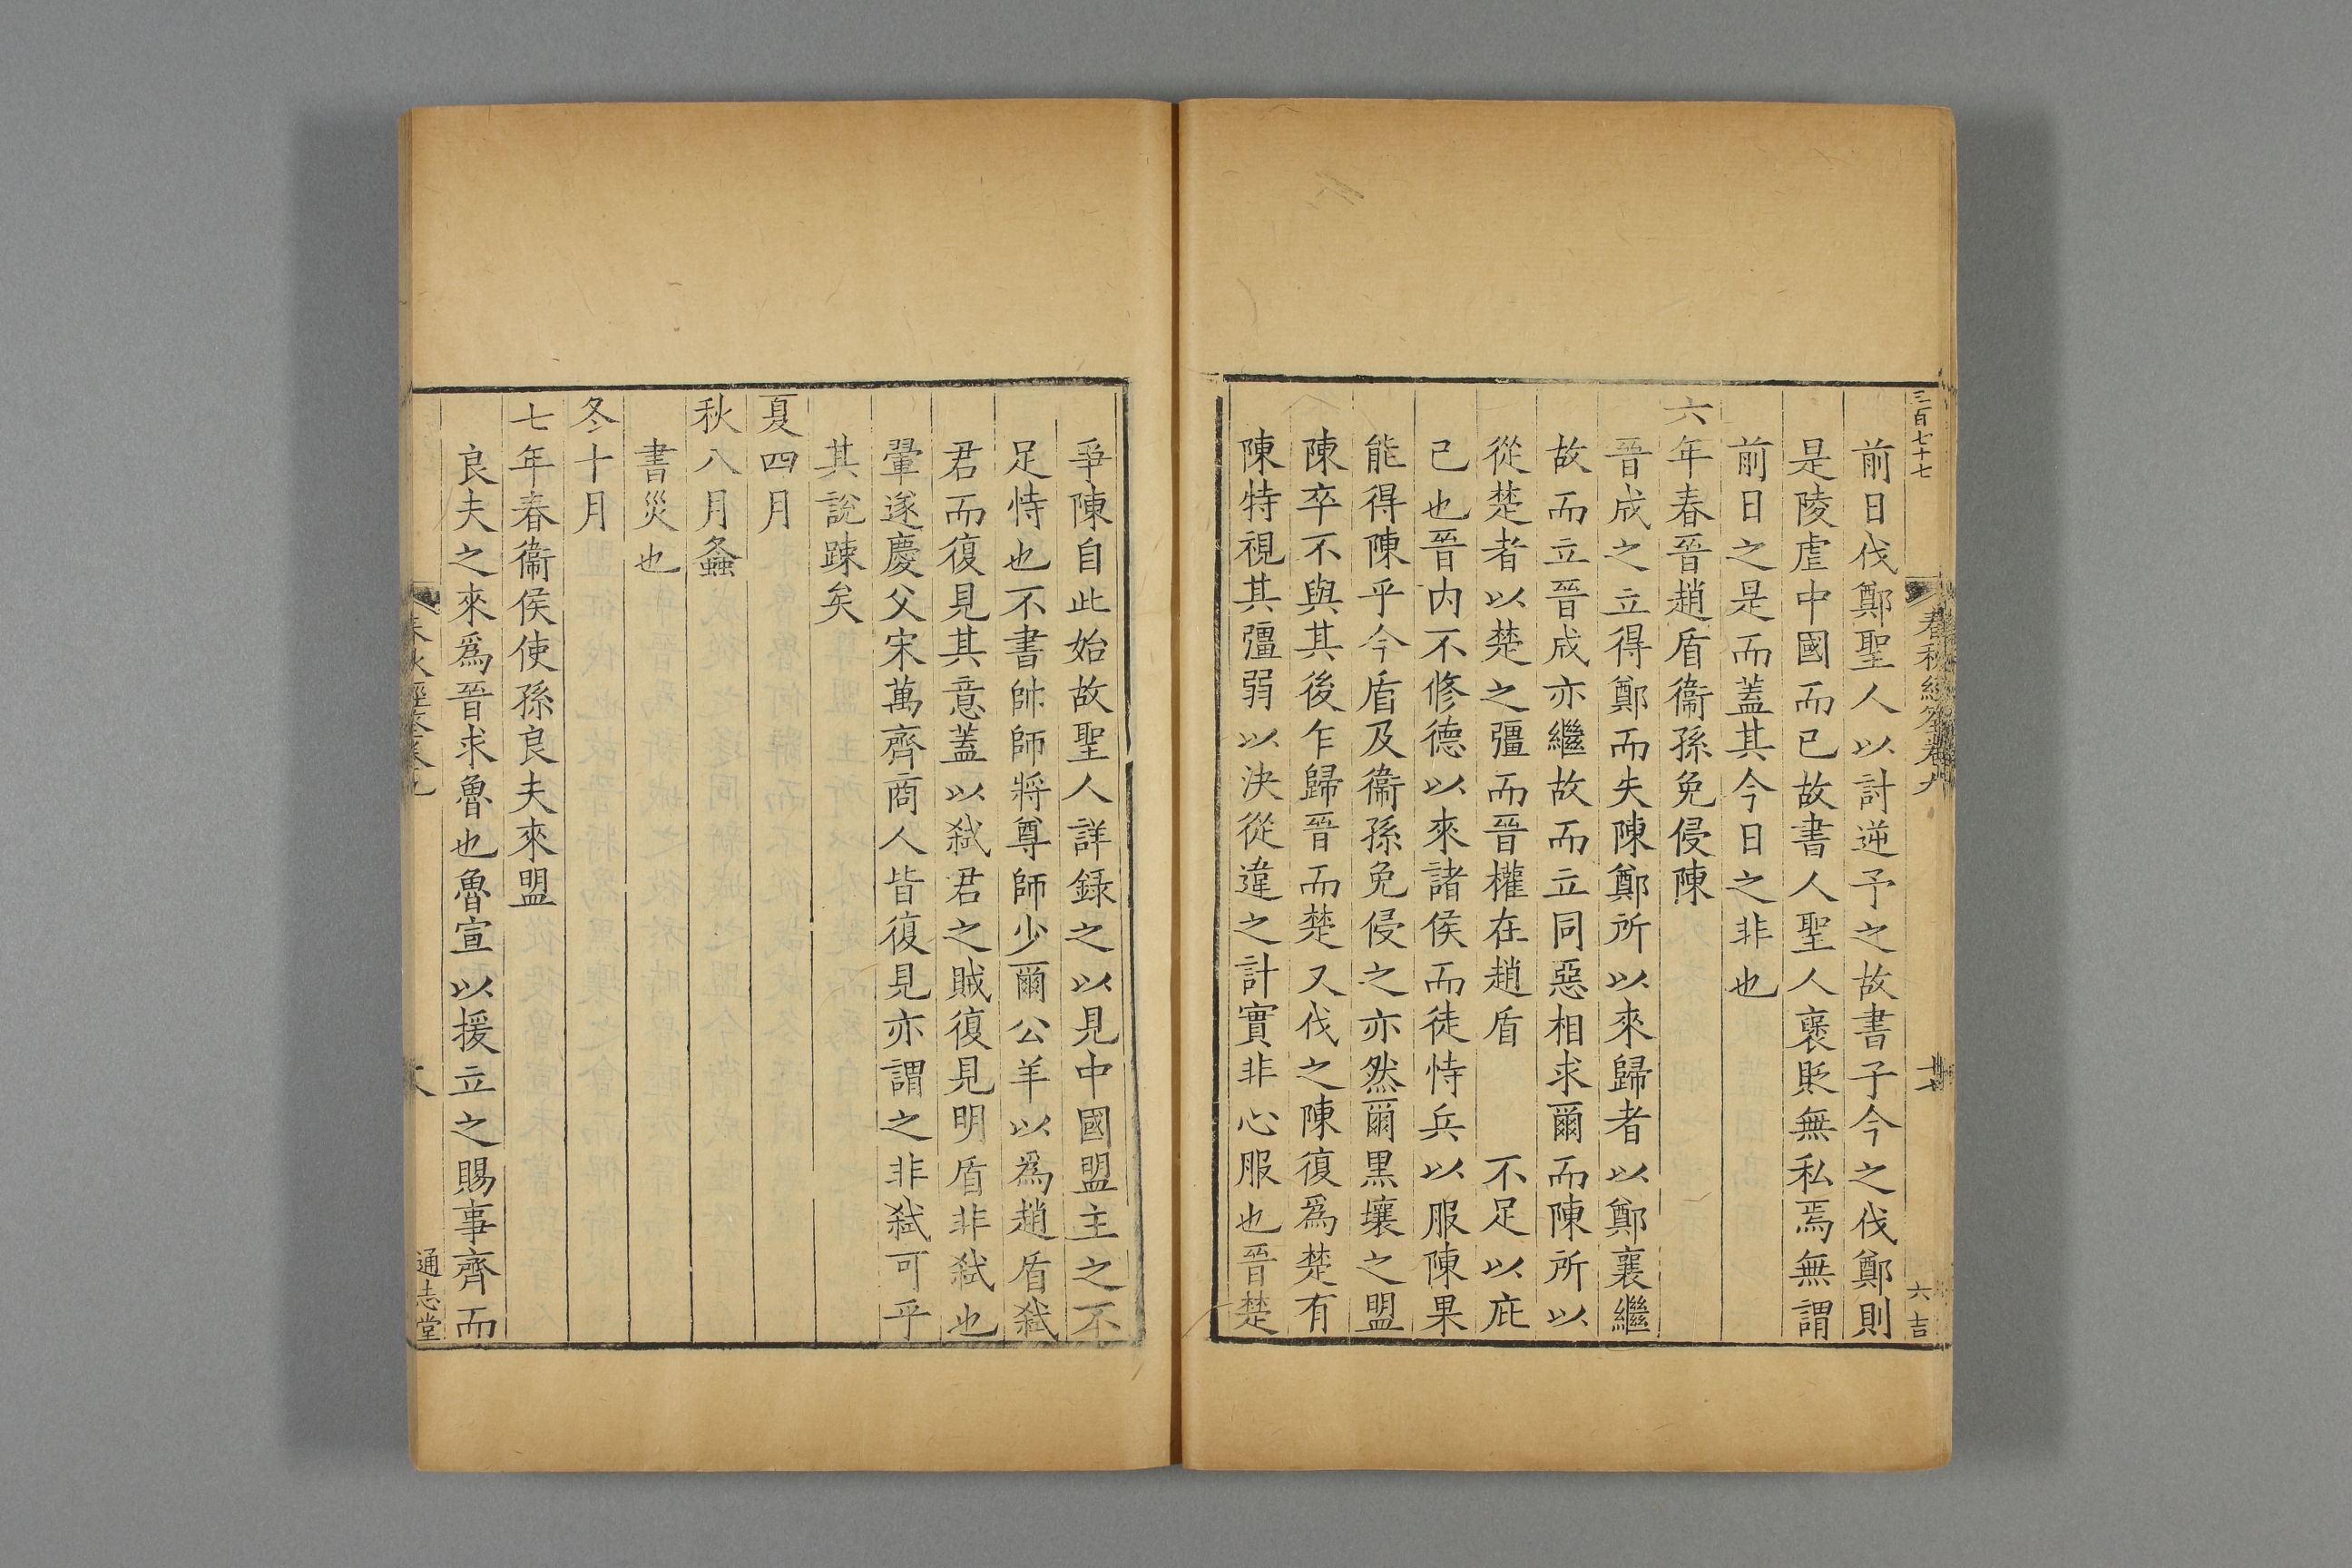 三百七十七
春秋經筌卷九
六吉
前日伐鄭聖人以討逆予之故書子今之伐鄭則
是陵虐中國而已故書人聖人襃貶無私焉無謂
前日之是而蓋其今日之非也
六年春晉趙盾衞孫免侵陳
晉成之立得鄭而失陳鄭所以來歸者以鄭襄繼
故而立晉成亦繼故而立同惡相求爾而陳所以
從楚者以楚之彊而晉權在趙盾 不足以庇
己也晉内不修德以來諸侯而徒恃兵以服陳果
能得陳乎今盾及衞孫免侵之亦然爾黒壤之盟
陳卒不與其後乍歸晉而楚又伐之陳復爲楚有
陳特視其彊弱以決從違之計實非心服也晉楚
爭陳自此始故聖人詳録之以見中國盟主之不
足恃也不書帥師將尊師少爾公羊以爲趙盾弑
君而復見其意蓋以弑君之賊復見明盾非弑也
翬遂慶父宋萬齊商人皆復見亦謂之非弑可乎
其說踈矣
夏四月
秋八月螽
書災也
冬十月
七年春衞侯使孫良夫來盟
良夫之來爲晉求魯也魯宣以援立之賜事齊而
通志堂